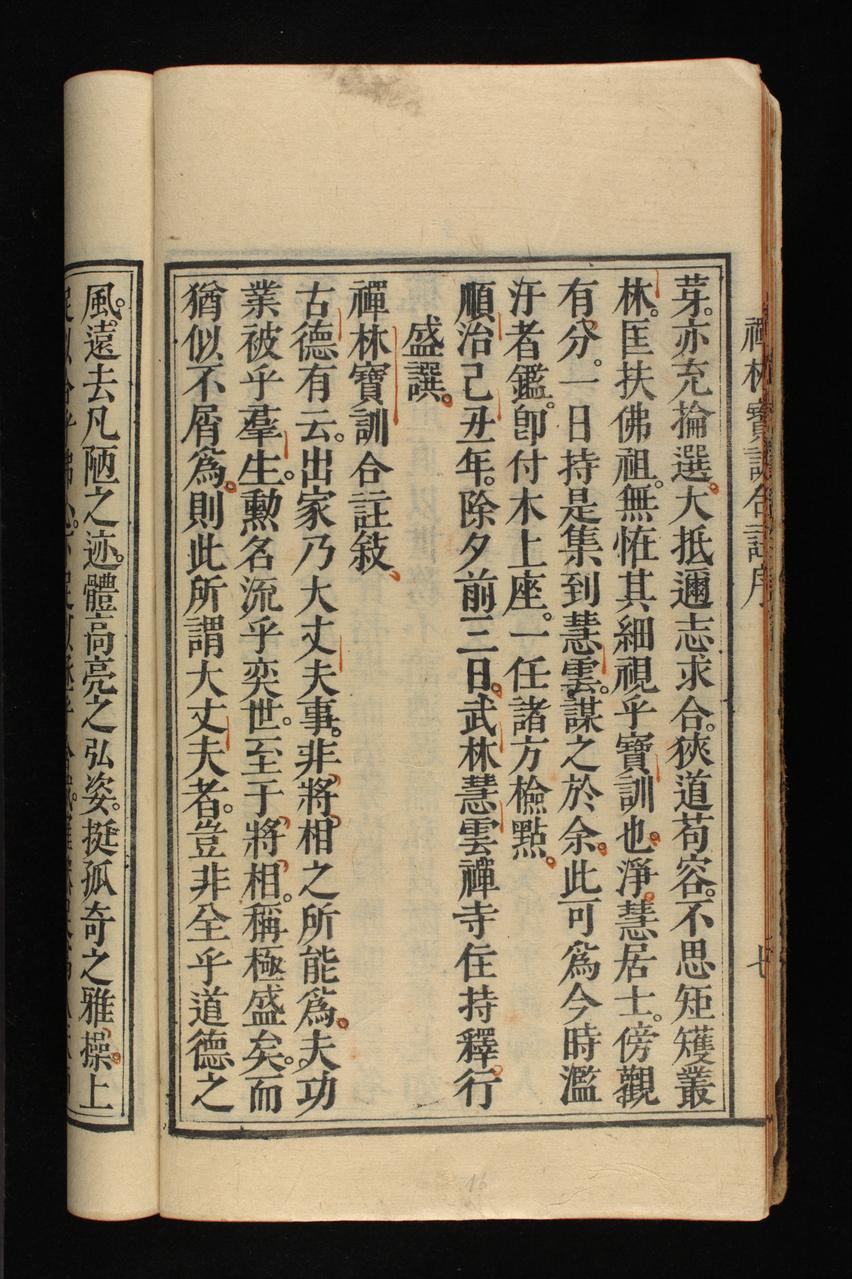 禪林寶訓合註序
七
芽。亦充掄選。大抵邇志求合。狹道苟容。不思矩矱叢
林。匡扶佛祖。無怪其細視乎寶訓也。淨慧居士。傍觀
有分。一日持是集到慧雲。謀之於余。此可爲今時濫
汙者鑑。卽付木上座。一任諸方檢點。
順治己丑年。除夕前三日。武林慧雲禪寺住持釋行
盛譔。
禪林寶訓合註敍
古德有云。出家乃大丈夫事。非將相之所能爲。夫功
業被乎羣生。勳名流乎奕世。至于將相。稱極盛矣。而
猶似不屑爲。則此所謂大丈夫者。豈非全乎道德之
風。遠去凡陋之迹。體高亮之弘姿。挺孤奇之雅操。上